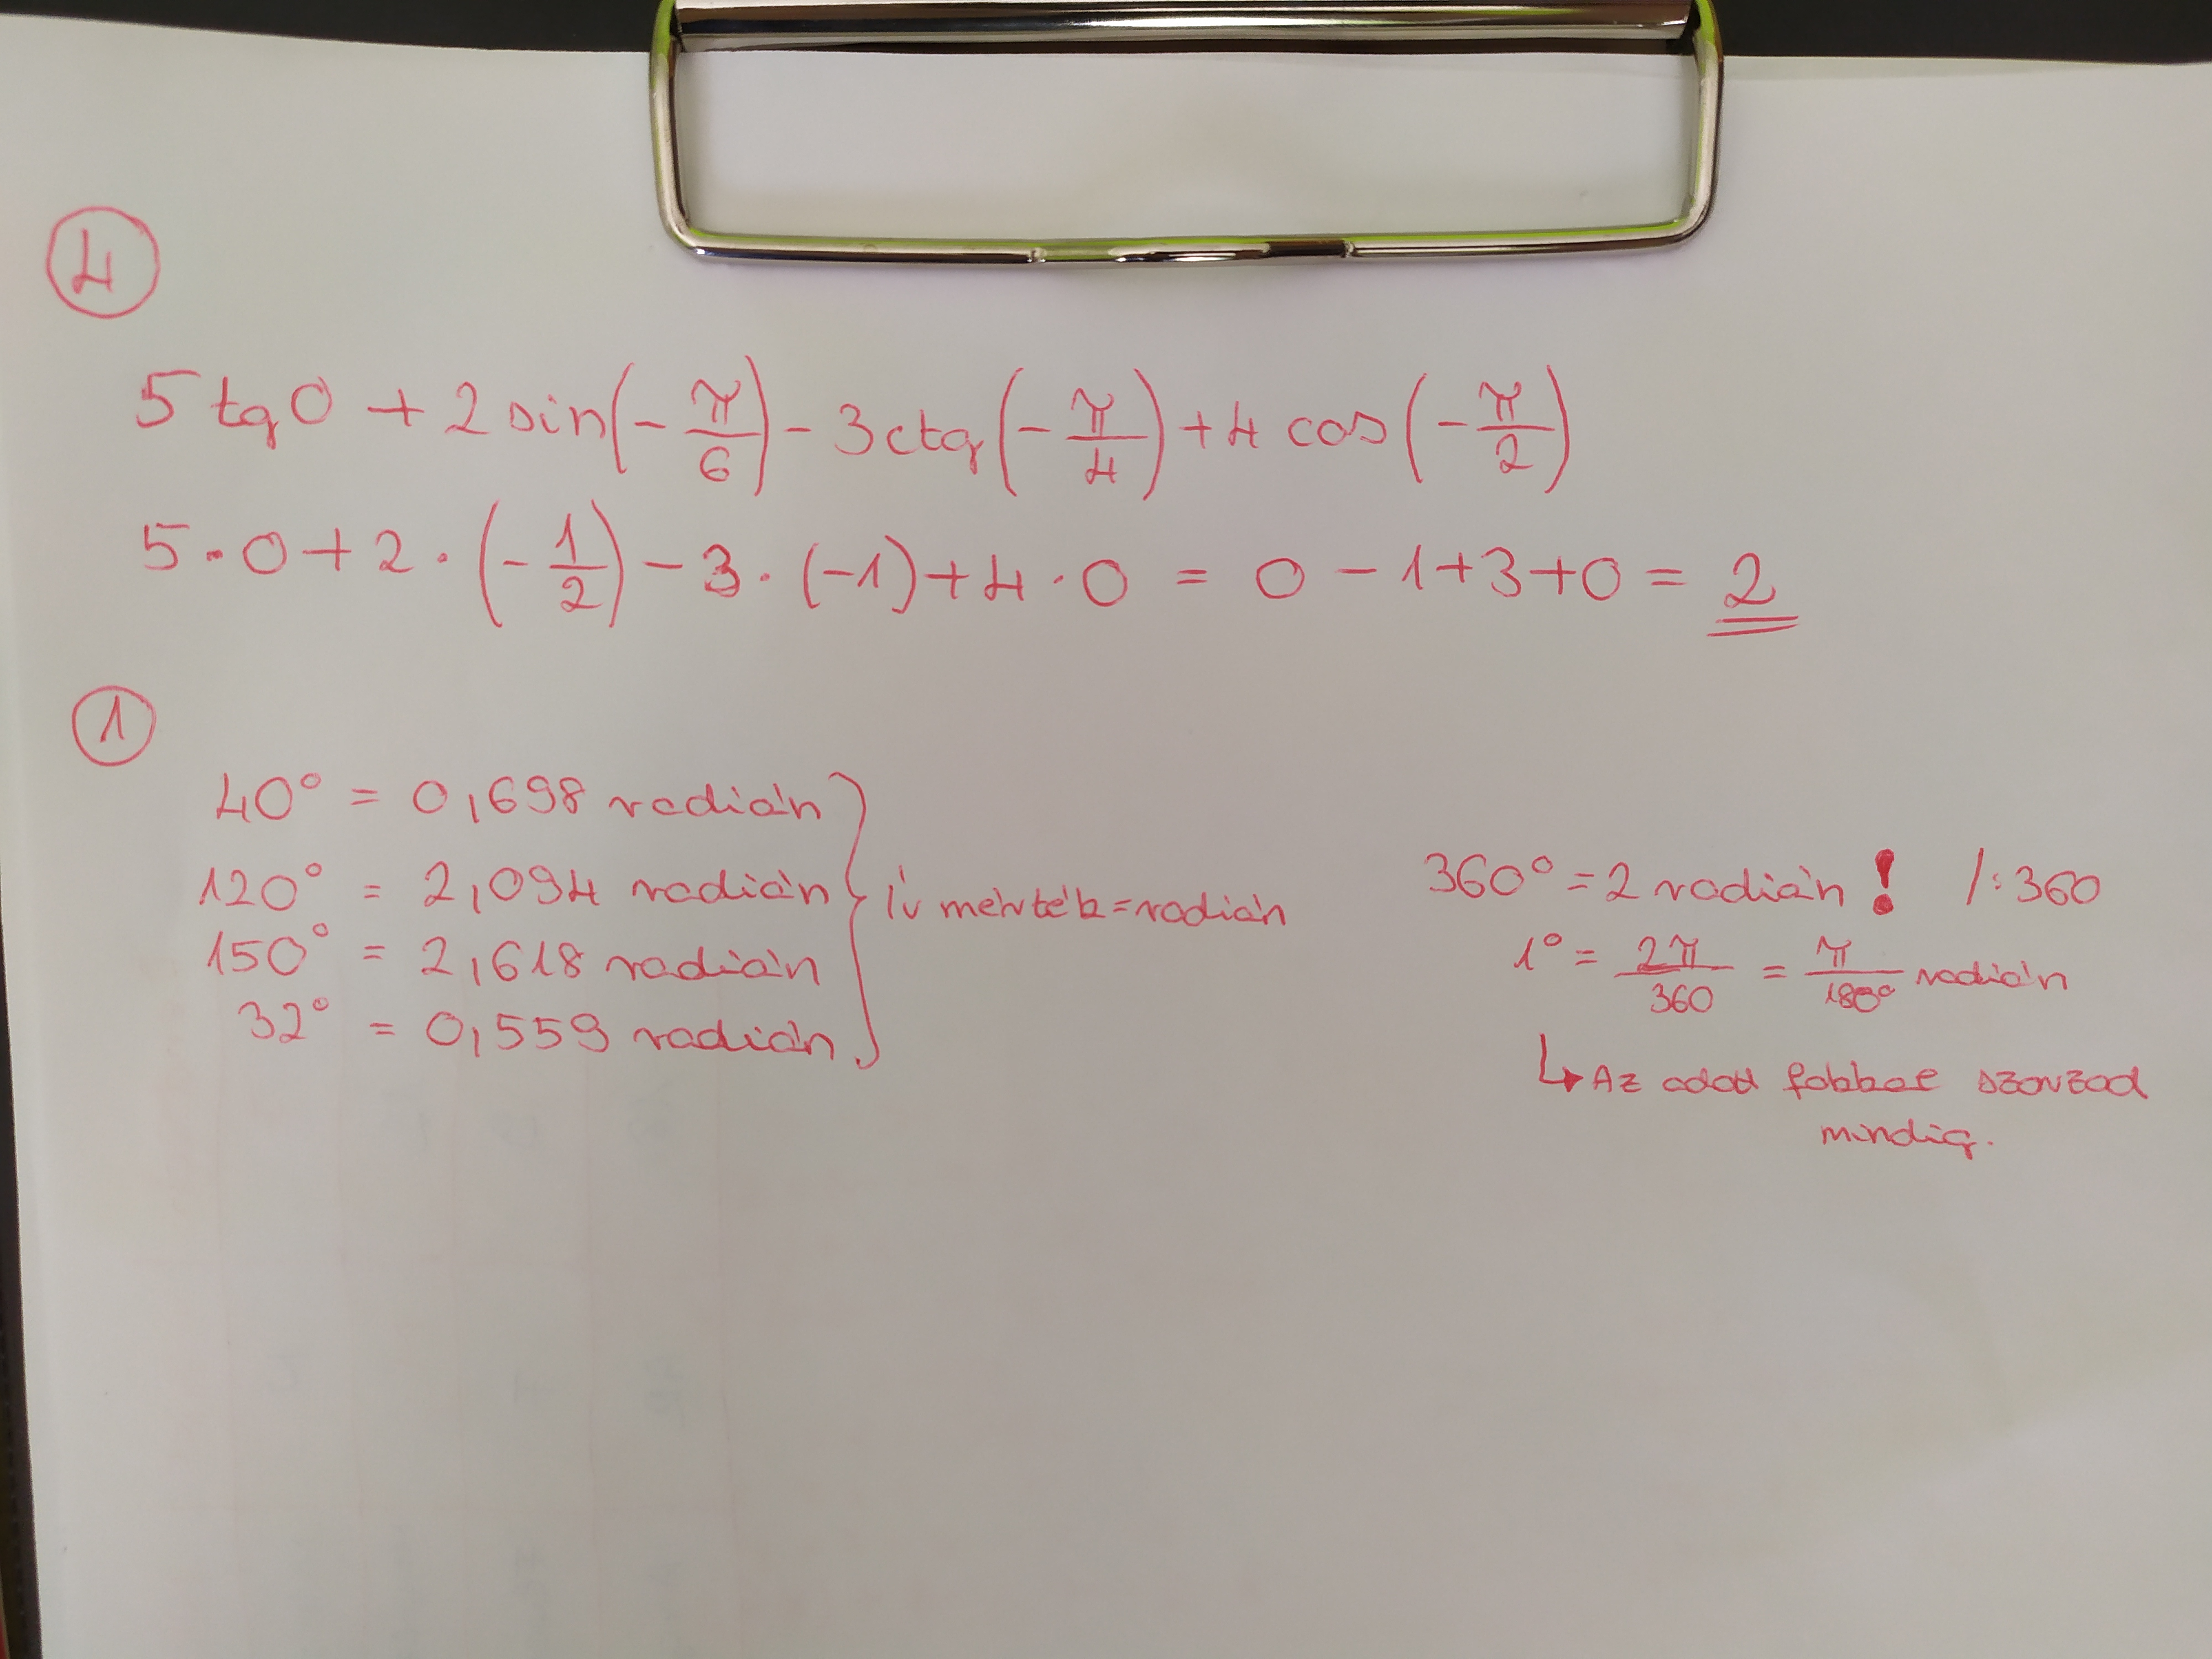 4
5 tg 0 + 2 sin(-π/6) - 3 ctg(-π/4) + 4 cos(-π/2)
5 · 0 + 2 · (-1/2) - 3 · (-1) + 4 · 0 = 0 - 1 + 3 + 0 = 2
1
40° = 0,698 radián
120° = 2,094 radián
150° = 2,618 radián
32° = 0,559 radián
ív mérték = radián
360° = 2 radián ! /: 360
1° = 2π/360 = π/180° radián
↳ Az adott fokkal szorzod
mindig.